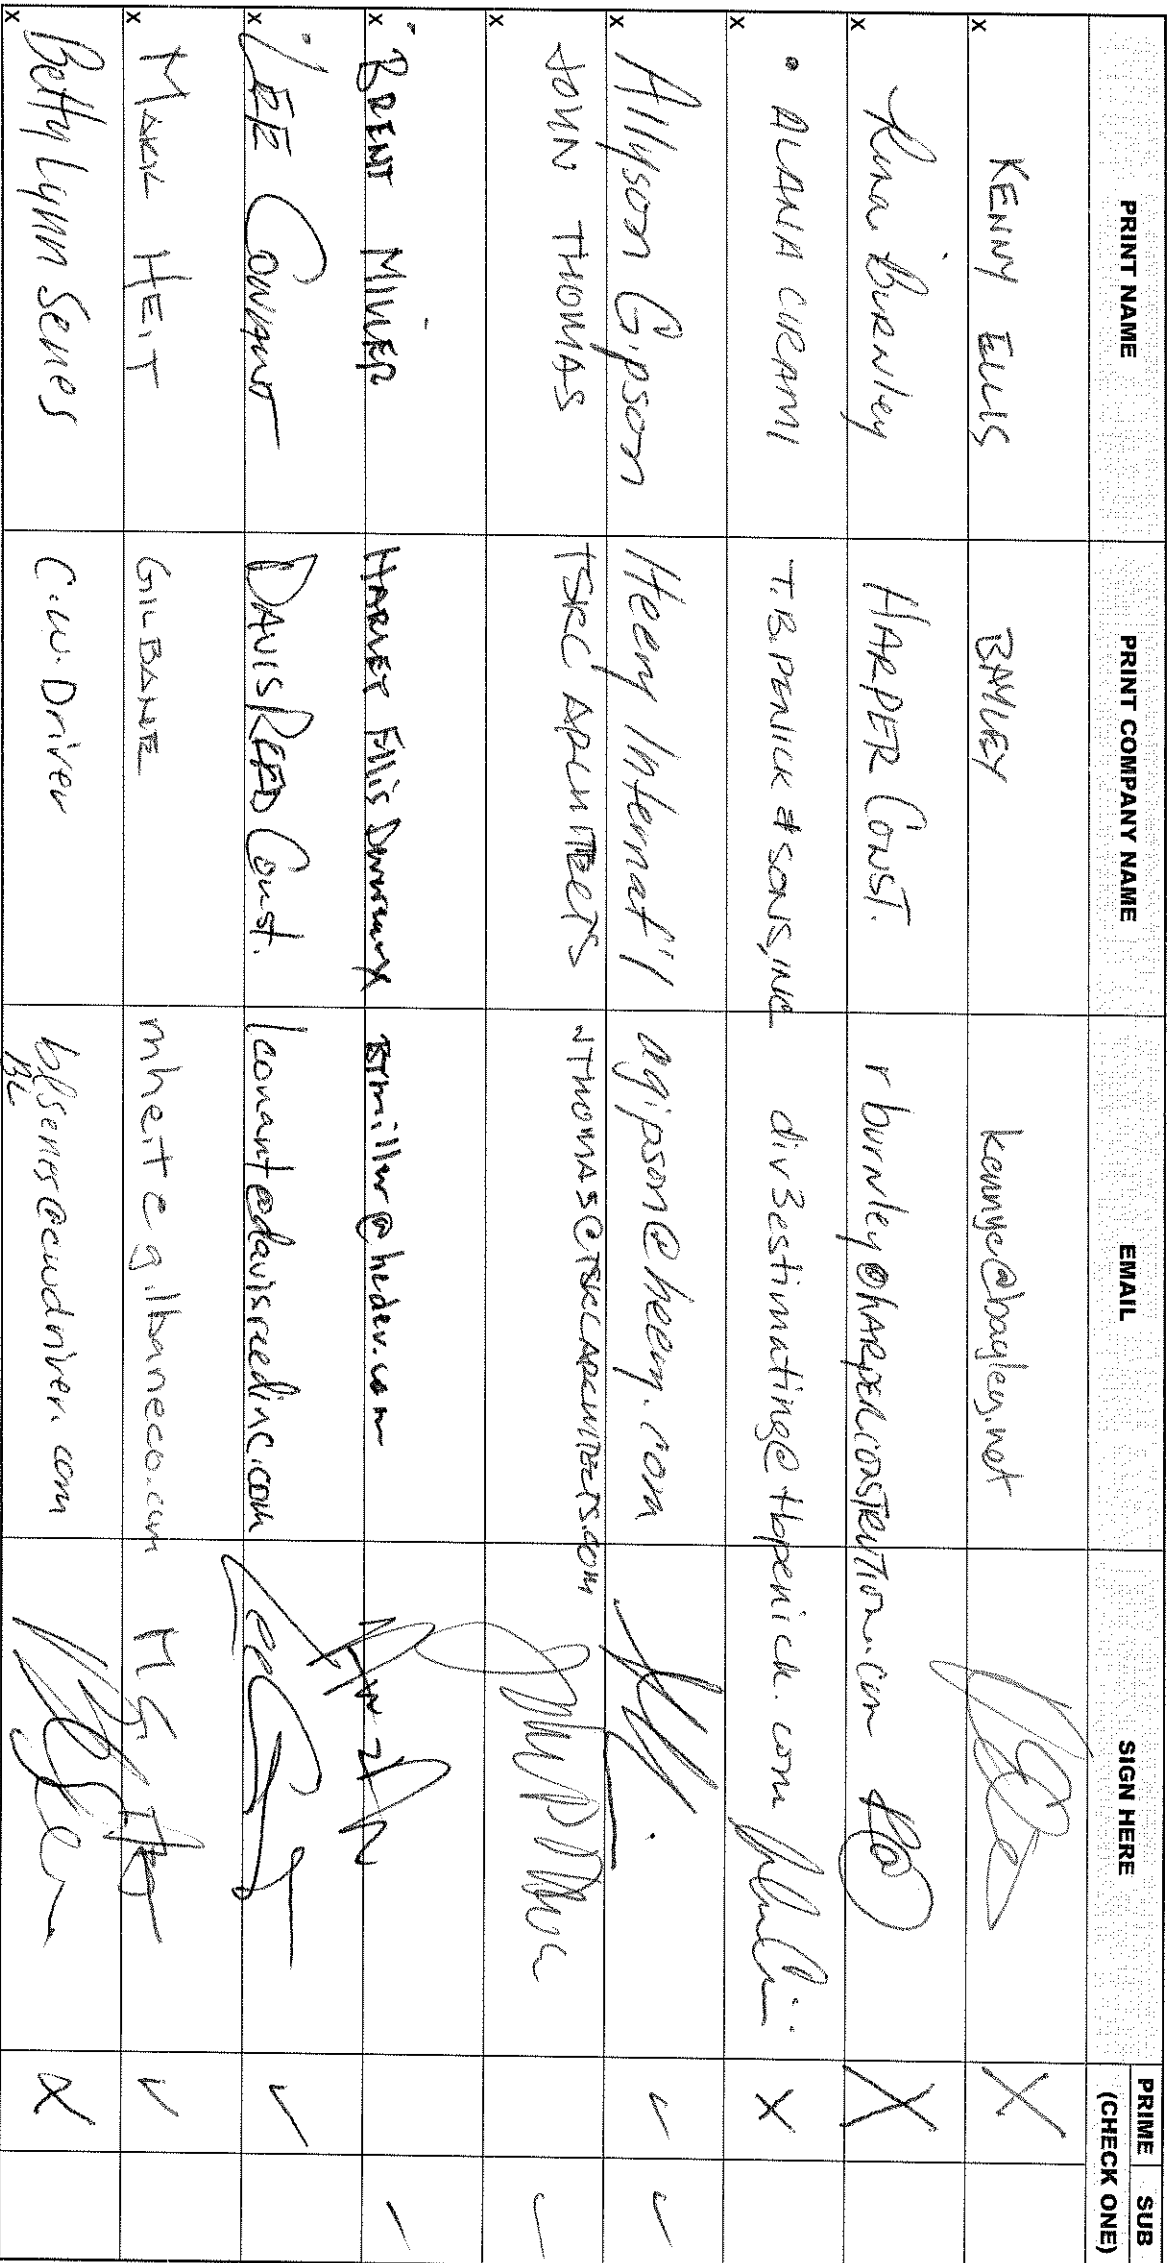 PRINT NAME PRINT COMPANY NAME EMAIL SIGN HERE PRIME SUB
(CHECK ONE)
x KENNY ELLIS BAYLEY kennye@bayley.net X
x Rena Burnley HARPER CONST. rburnley@HARPERCONSTRUCTION.com X
x • ALANA CIRAMI T.B. PENICK & SONS, INC div3estimating@tbpenick.com X
x Allyson Gipson Heery Internat'l agipson@heery.com ✓ ✓
x JOHN THOMAS TSKC ARCHITECTS JTHOMAS@TSKCARCHITECTS.COM ✓
x BRENT MILLER HARLEY Ellis Devereaux BTmiller@hedev.com ✓
x LEE CONANT DAVIS REED Const. lconant@davisreedinc.com ✓
x MARK HEIT GILBANE mheit@gilbaneco.com ✓
x Betty Lynn Senes C.W. Driver blsenes@cwdriver.com X
BL